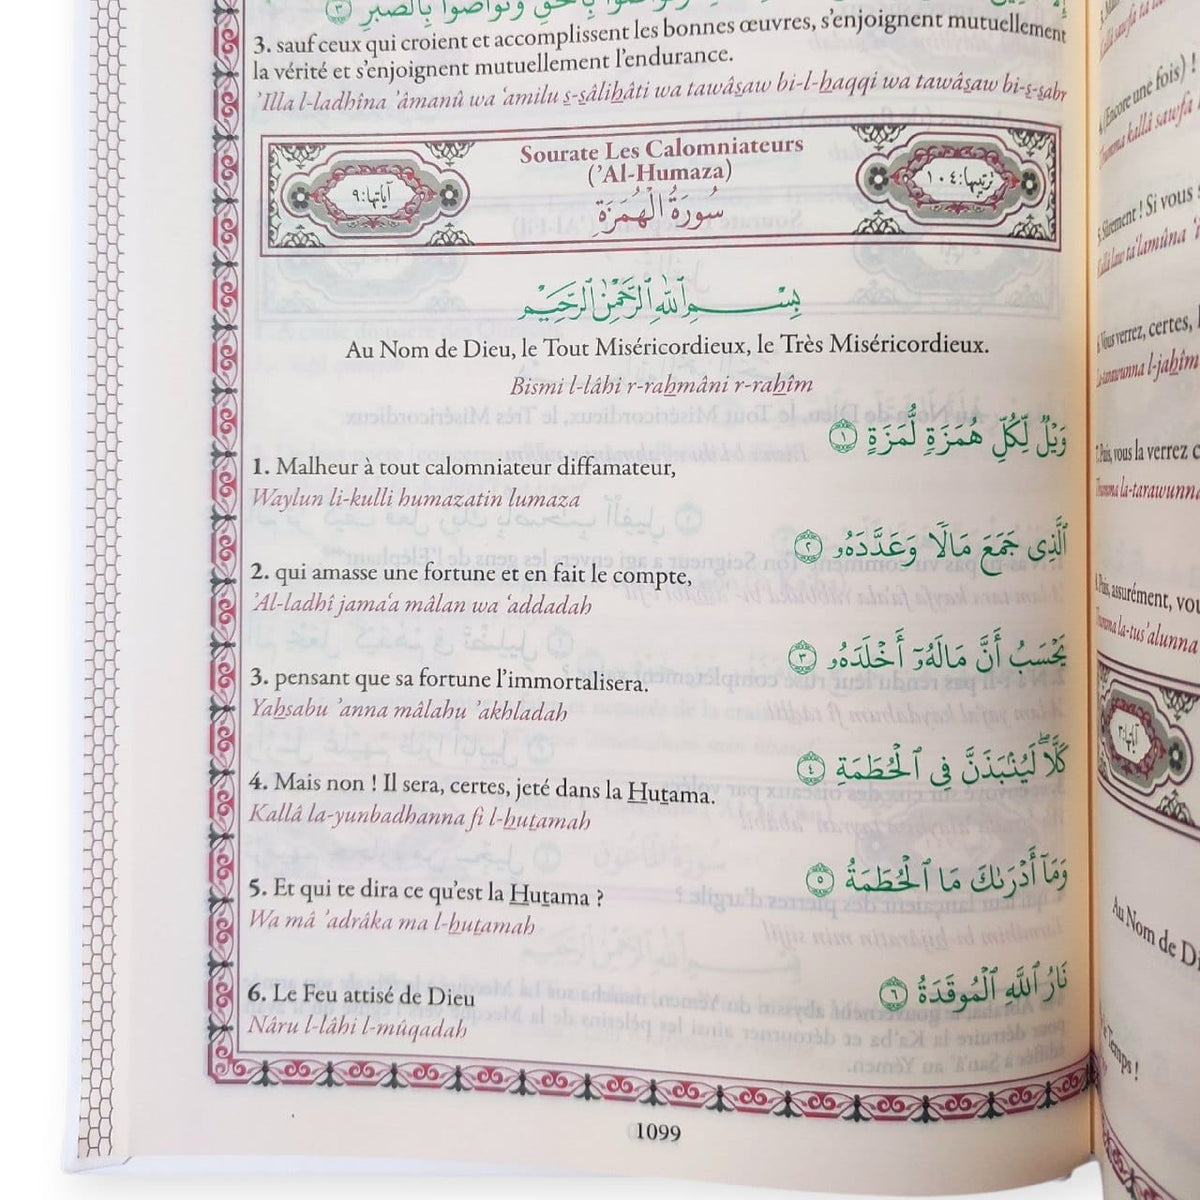 وتواصوا بالحق وتواصوا بالصبر ٣
3. sauf ceux qui croient et accomplissent les bonnes œuvres, s'enjoignent mutuellement
la vérité et s'enjoignent mutuellement l'endurance.
'Illa l-ladhîna 'âmanû wa 'amilu s-sâlihâti wa tawâsaw bi-l-haqqi wa tawâsaw bi-s-sabr
آياتها: ٩
Sourate Les Calomniateurs
ترتيبها: ١٠٤
('Al-Humaza)
سُورَةُ الْهُمَزَةِ
بِسْمِ ٱللَّهِ ٱلرَّحْمَٰنِ ٱلرَّحِيمِ
Au Nom de Dieu, le Tout Miséricordieux, le Très Miséricordieux.
Bismi l-lâhi r-rahmâni r-rahîm
وَيْلٌ لِّكُلِّ هُمَزَةٍ لُّمَزَةٍ ١
1. Malheur à tout calomniateur diffamateur,
Waylun li-kulli humazatin lumaza
ٱلَّذِى جَمَعَ مَالًا وَعَدَّدَهُۥ ٢
2. qui amasse une fortune et en fait le compte,
'Al-ladhî jama'a mâlan wa 'addadah
يَحْسَبُ أَنَّ مَالَهُۥٓ أَخْلَدَهُۥ ٣
3. pensant que sa fortune l'immortalisera.
Yahsabu 'anna mâlahu 'akhladah
كَلَّا ۖ لَيُنۢبَذَنَّ فِى ٱلْحُطَمَةِ ٤
4. Mais non ! Il sera, certes, jeté dans la Hutama.
Kallâ la-yunbadhanna fi l-hutamah
وَمَآ أَدْرَىٰكَ مَا ٱلْحُطَمَةُ ٥
5. Et qui te dira ce qu'est la Hutama ?
Wa mâ 'adrâka ma l-hutamah
نَارُ ٱللَّهِ ٱلْمُوقَدَةُ ٦
6. Le Feu attisé de Dieu
Nâru l-lâhi l-mûqadah
1099
(Encore une fois) !
kallâ sawfa
Sûrement ! Si vous
law ta'lamûna
Vous verrez, certes,
l-jahîm
Puis, vous la verrez
la-tarawunna
assurément, vou
la-tus'alunna
آياتها: ٣
Au Nom de Di
Temps !